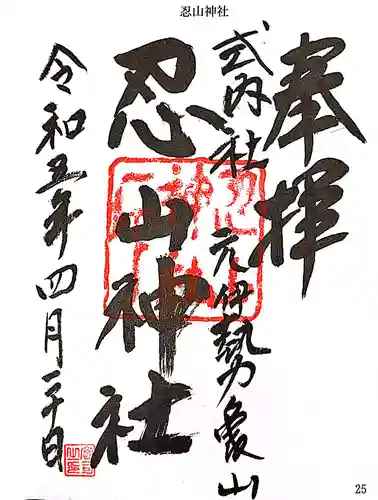 忍山神社
奉拝
式内社 元伊勢亀山
忍山神社
令和五年四月二十日
25